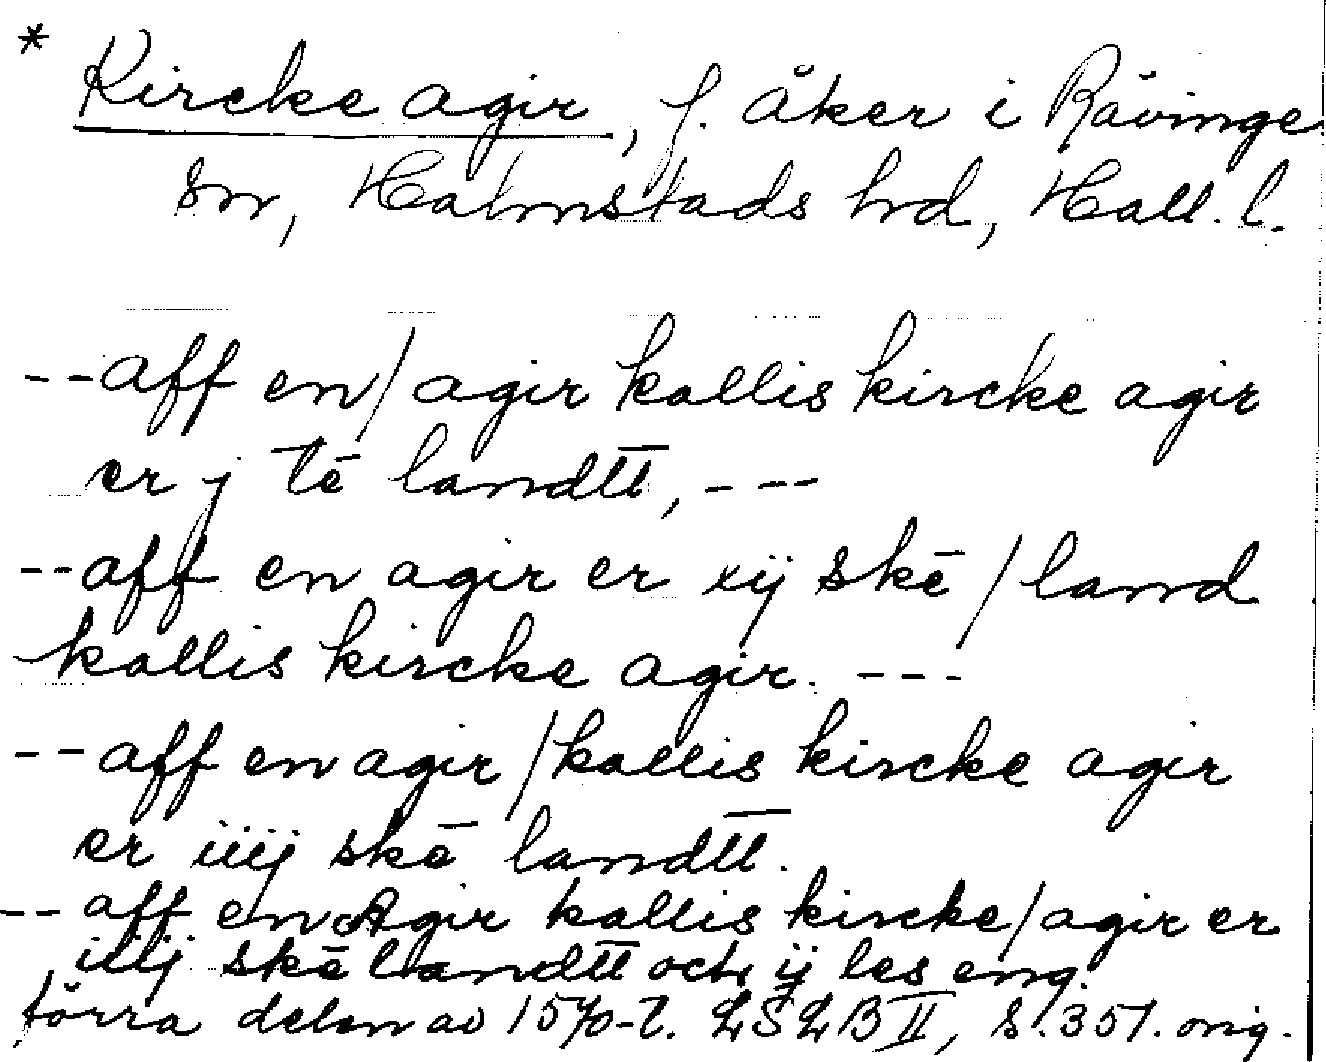 * Kircke agir, f. åker i Rävinge
sn, Halmstads hrd, Hall. l.
--aff en/agir kallis kircke agir
er j tē landtt̅, ---
--aff en agir er xij skē/land
kallis kircke agir. ---
--aff en agir/kallis kircke agir
er iiij skē landtt̅.
--aff en Agir kallis kircke/agir er
iiij skē landtt̅ och ij les eng.
förra delen av 1570-t. LSLB II, s. 351. orig.